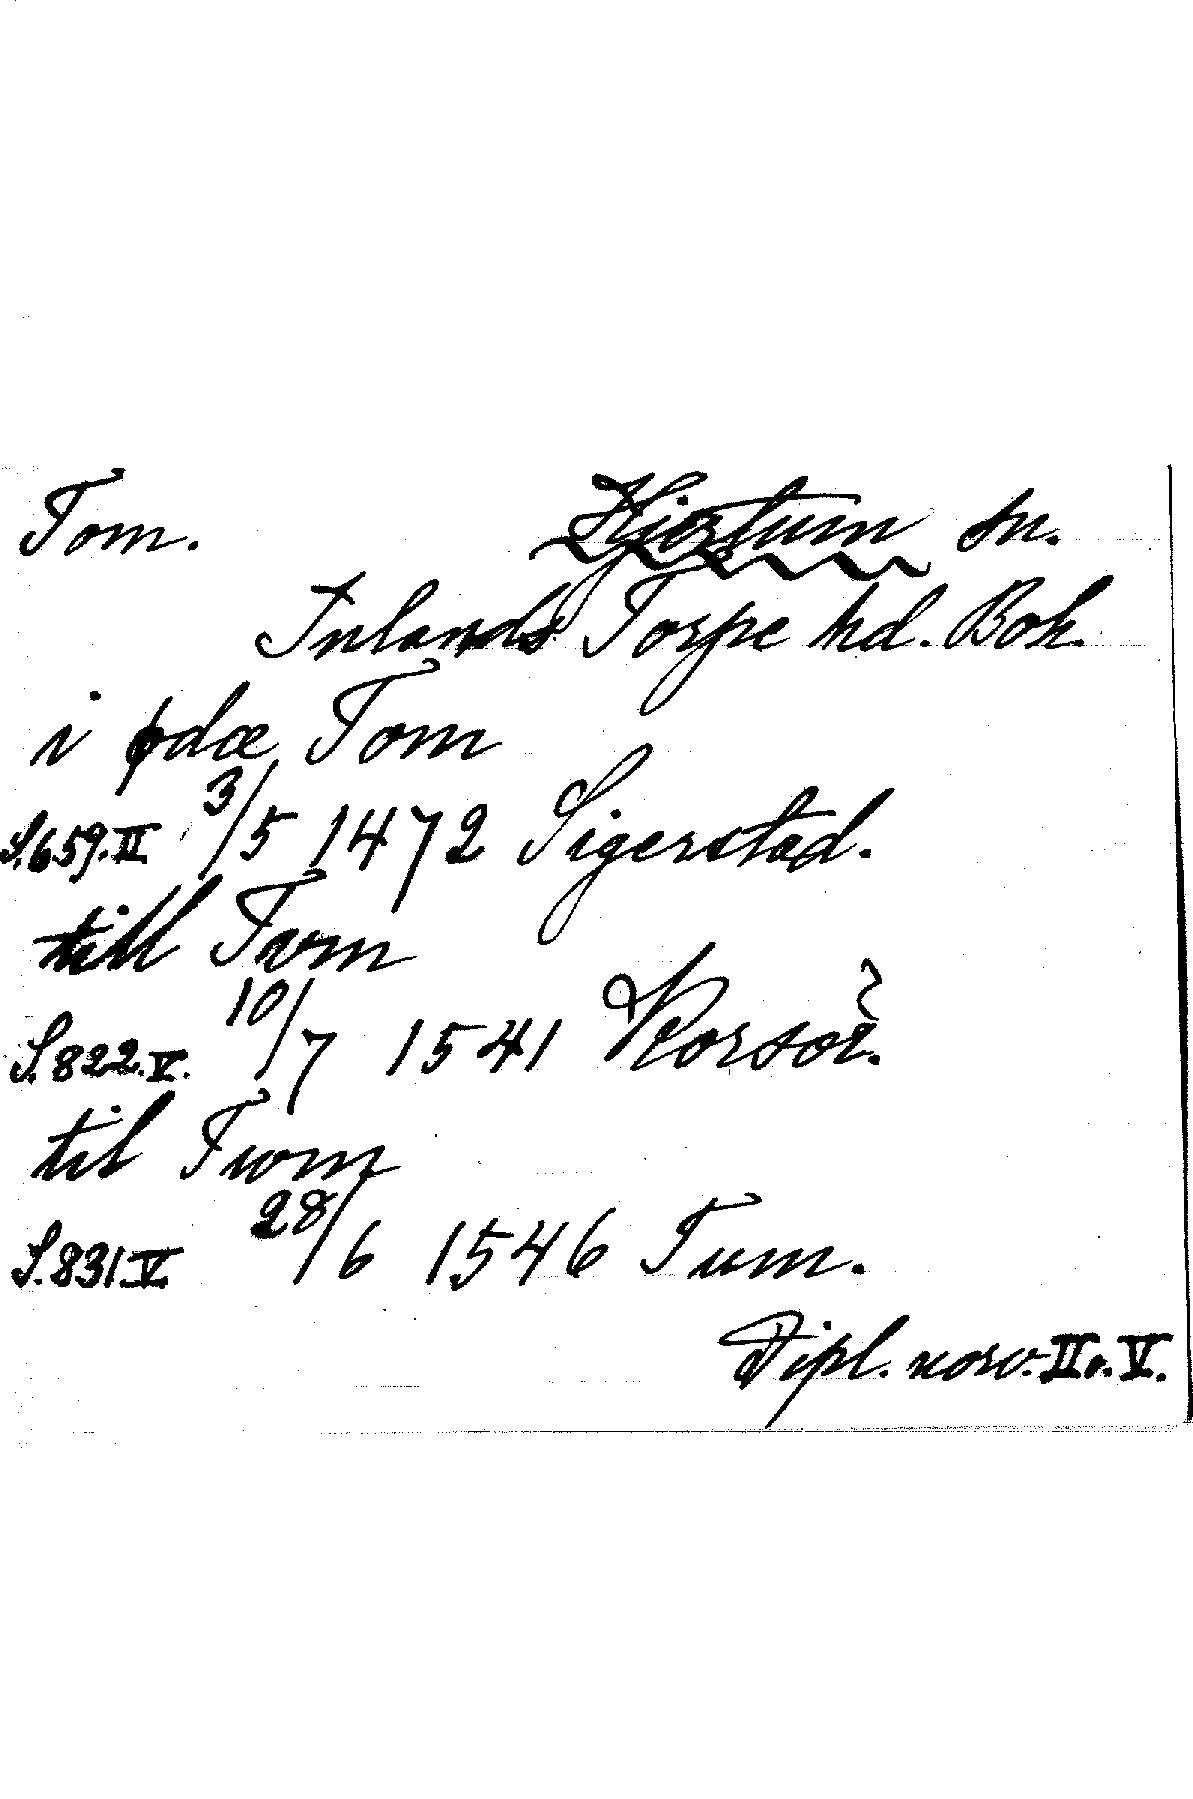 Tom. Hjertum sn.
Inlands Torpe hd. Boh.
i ødæ Tom
S.659.II 3/5 1472 Sigerstad.
till Tom
S.822.V. 10/7 1541 Korsör.
til Twm
S.831 V 28/6 1546 Tum.
Dipl. norv. II o. V.